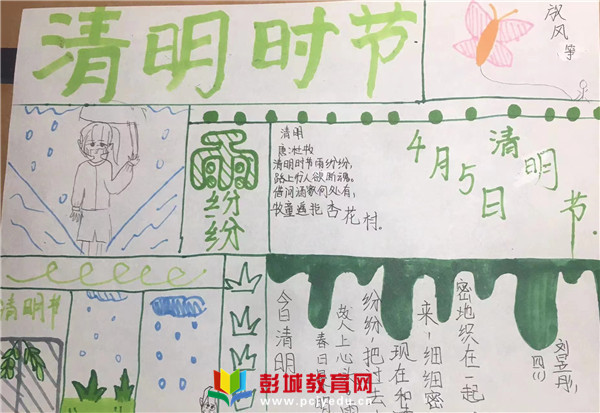 清明时节
放风筝
雨纷纷
清明
唐·杜牧
清明时节雨纷纷,
路上行人欲断魂。
借问酒家何处有,
牧童遥指杏花村。
4月5日
清明节
清明节
今日清明
春日
故人上心头
纷纷,把过去
现在和
来,细细密
密地织在一起
四(1)
彭城教育网